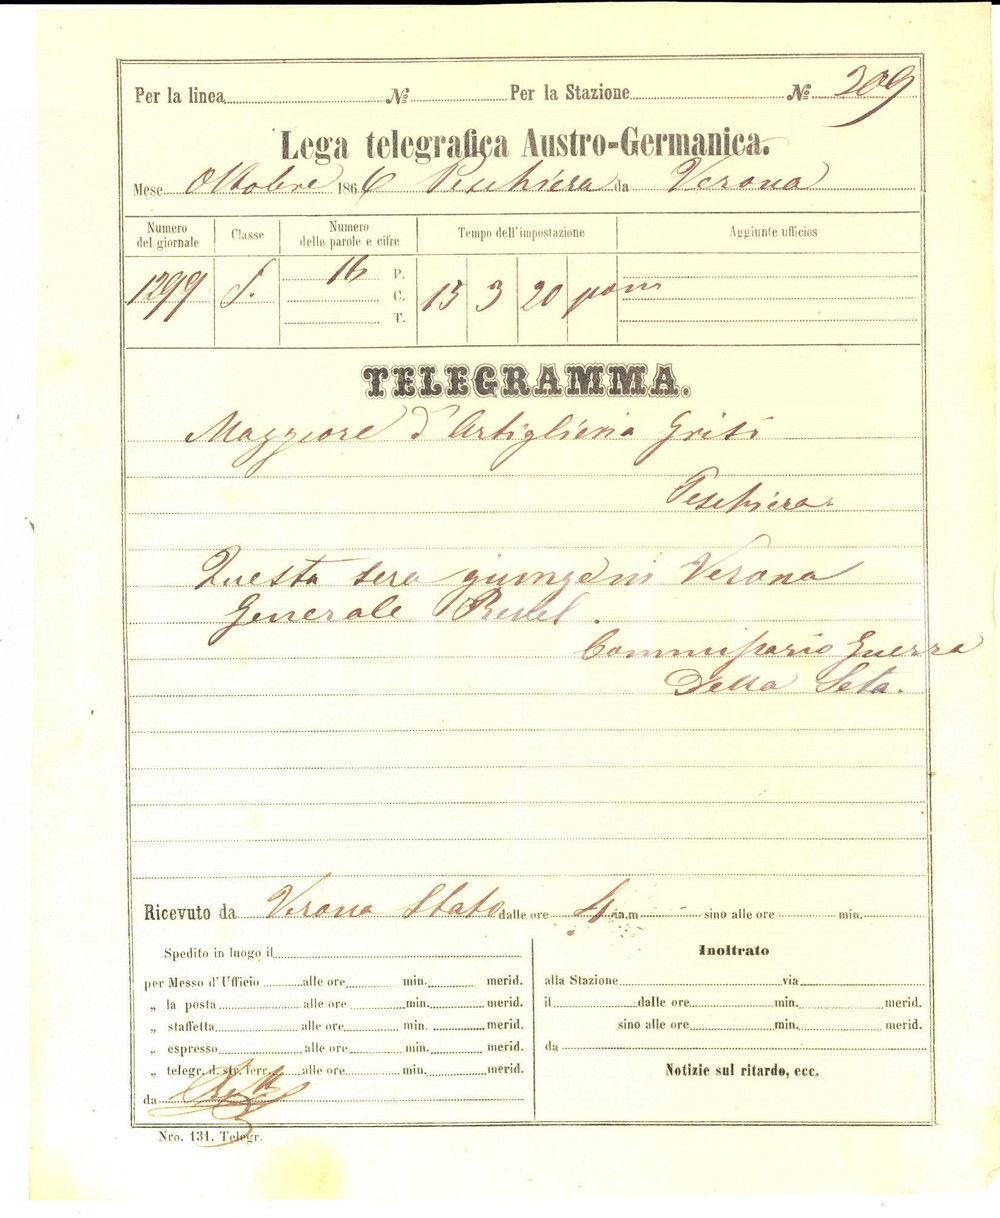 Per la linea № Per la Stazione № 309
Lega telegrafica Austro-Germanica.
Mese Ottobre 1866 Peschiera da Verona
Numero del giornale Classe Numero delle parole e cifre Tempo dell'impostazione Aggiunte ufficios
1299 S. 16 P. C. T. 15 3 20 pom
TELEGRAMMA.
Maggiore d'Artiglieria Grisi
Peschiera.
Questa sera giunge in Verona
Generale Revel.
Commissario Guerra
Della Seta.
Ricevuto da Verona Stato dalle ore 4 m sino alle ore min.
Spedito in luogo il
per Messo d'Ufficio alle ore min. merid.
„ la posta alle ore min. merid.
„ staffetta alle ore min. merid.
„ espresso alle ore min. merid.
„ telegr. d. str. ferr. alle ore min. merid.
da
Inoltrato
alla Stazione via
il dalle ore min. merid.
sino alle ore min. merid.
da
Notizie sul ritardo, ecc.
Nro. 131. Telegr.